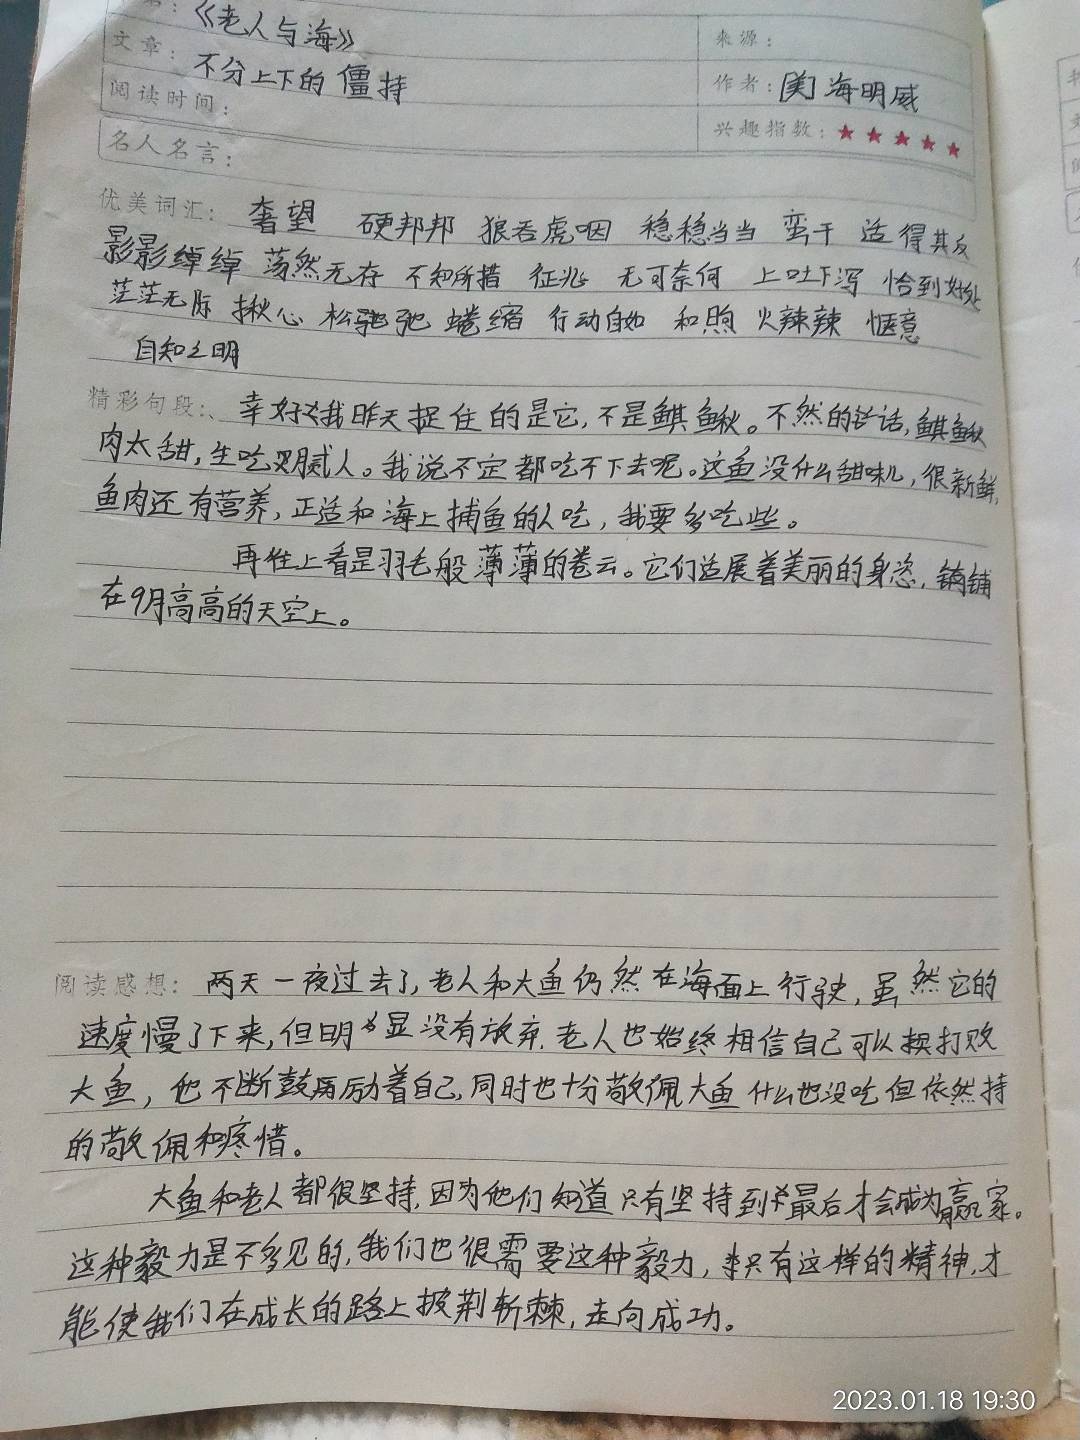 《老人与海》
文章：不分上下的僵持
来源：
作者：[美]海明威
阅读时间：
兴趣指数：★★★★★
名人名言：
优美词汇：奢望 硬邦邦 狼吞虎咽 稳稳当当 蛮干 适得其反
影影绰绰 荡然无存 不知所措 征兆 无可奈何 上吐下泻 恰到好处
茫茫无际 揪心 松驰 蜷缩 行动自如 和煦 火辣辣 惬意
自知之明
精彩句段：幸好我昨天捉住的是它，不是鲯鳅。不然的话，鲯鳅
肉太甜，生吃更腻人。我说不定都吃不下去呢。这鱼没什么甜味儿，很新鲜，
鱼肉还有营养，正适和海上捕鱼的人吃，我要多吃些。
再往上看是羽毛般薄薄的卷云。它们适展着美丽的身姿，铺
在9月高高的天空上。
阅读感想：两天一夜过去了，老人和大鱼仍然在海面上行驶，虽然它的
速度慢了下来，但明显没有放弃。老人也始终相信自己可以打败
大鱼，他不断鼓励着自己，同时也十分敬佩大鱼什么也没吃但依然持
的敬佩和疼惜。
大鱼和老人都很坚持，因为他们知道只有坚持到最后才会成为赢家。
这种毅力是不多见的，我们也很需要这种毅力，只有这样的精神，才
能使我们在成长的路上披荆斩棘，走向成功。
2023.01.18 19:30